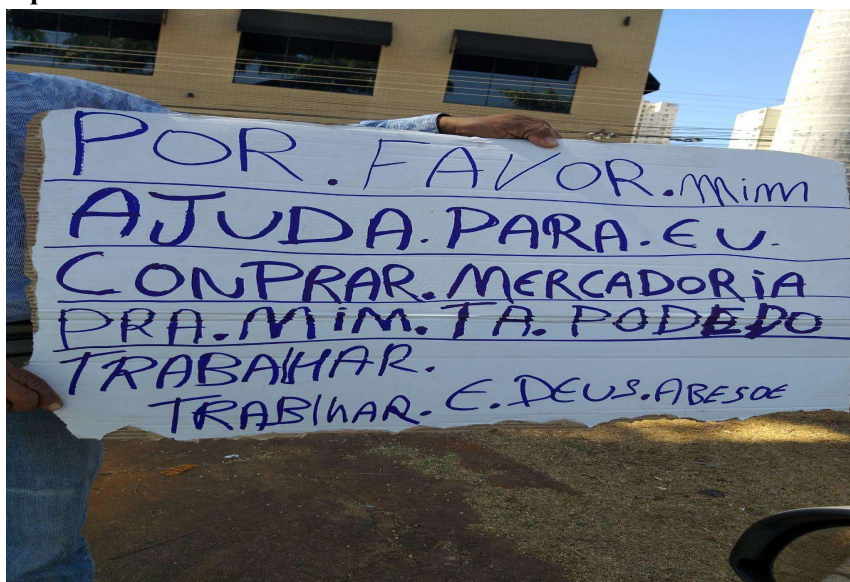 POR.FAVOR.mim
AJUDA.PARA.EU.
CONPRAR.MERCADORiA
PRA.MiM.TA.PODEDO
TRABAlHAR.
TRABlHAR.E.DEUS.ABESOE